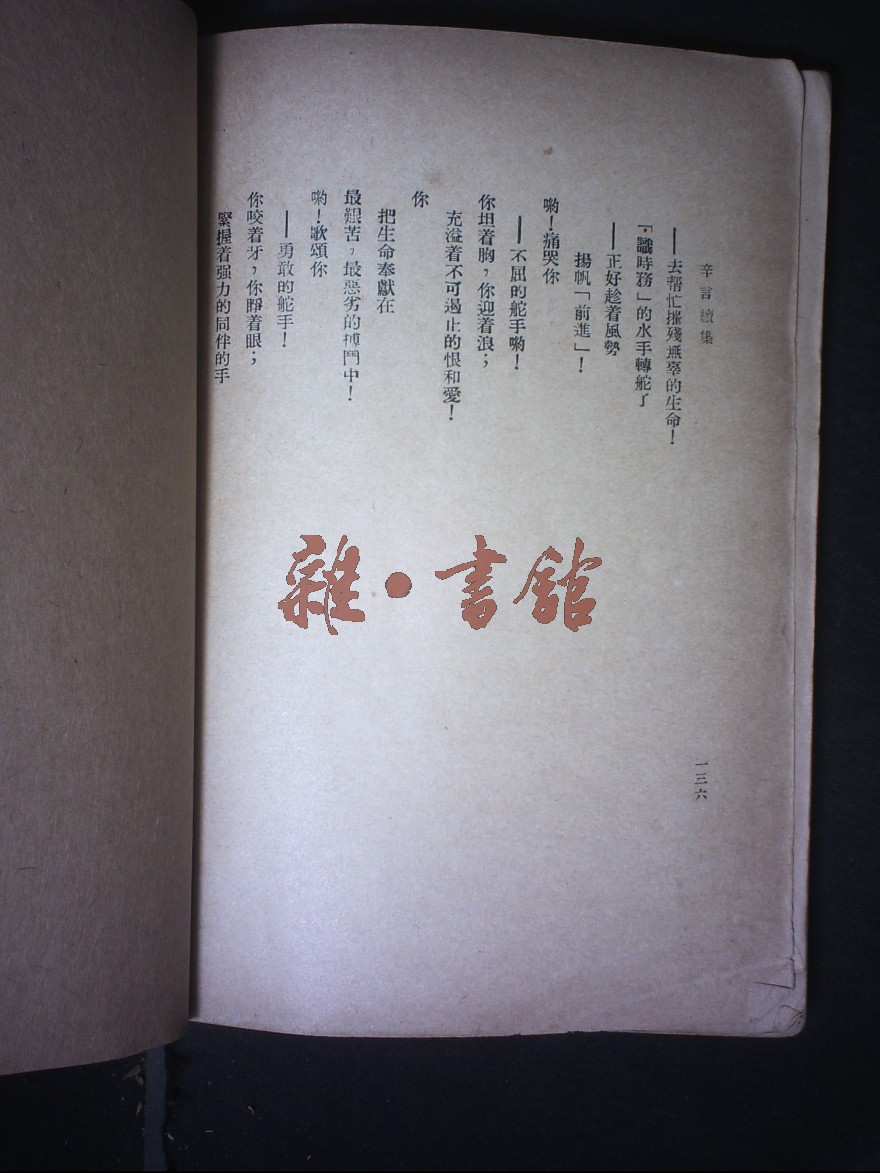 辛言續集
——去帮忙摧殘無辜的生命！
「識時務」的水手轉舵了
——正好趁着風勢
揚帆「前進」！
喲！痛哭你
——不屈的舵手喲！
你坦着胸，你迎着浪；
充溢着不可遏止的恨和愛！
你
把生命奉獻在
最艱苦，最惡劣的搏鬥中！
喲！歌頌你
——勇敢的舵手！
你咬着牙，你睜着眼；
緊握着强力的同伴的手
一三六
雜·書館